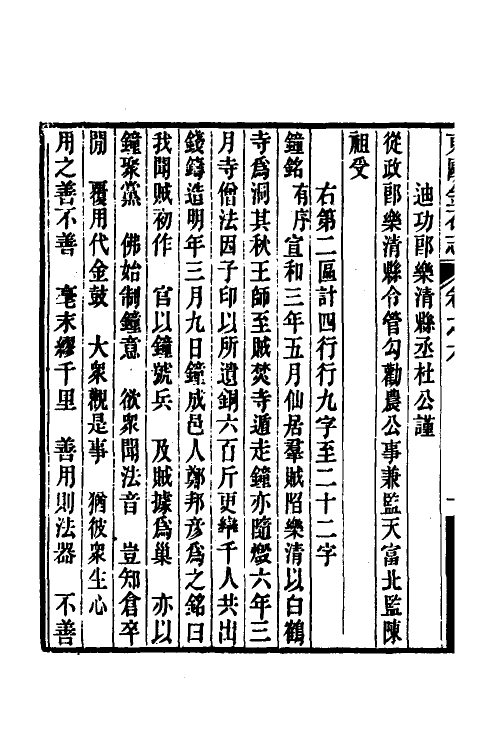 東甌金石志 卷之六
迪功郎樂清縣丞杜公謹
從政郎樂清縣令管勾勸農公事兼監天富北監陳
祖受
右第二區計四行行九字至二十二字
鐘銘 有序 宣和三年五月仙居羣賊陷樂清以白鶴
寺爲洞其秋王師至賊焚寺遁走鐘亦隨燬六年三
月寺僧法因子印以所遺銅六百斤更率千人共出
錢鑄造明年三月九日鐘成邑人鄭邦彥爲之銘曰
我聞賊初作 官以鐘號兵 及賊據爲巢 亦以
鐘聚黨 佛始制鐘意 欲衆聞法音 豈知倉卒
閒 覆用代金鼓 大衆觀是事 猶彼衆生心
用之善不善 毫末繆千里 善用則法器 不善